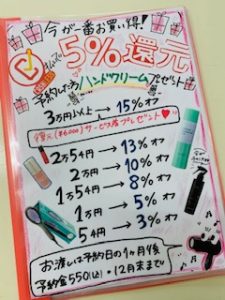 今が一番お買い得!
5%還元
予約したらハンドクリームプレゼント
3万円以上→15%オフ
2万5千円→13%オフ
2万円→10%オフ
1万5千円→8%オフ
1万円→5%オフ
5千円→3%オフ
お渡しは予約日の1ヶ月後
予約金550(込)・12月末まで!